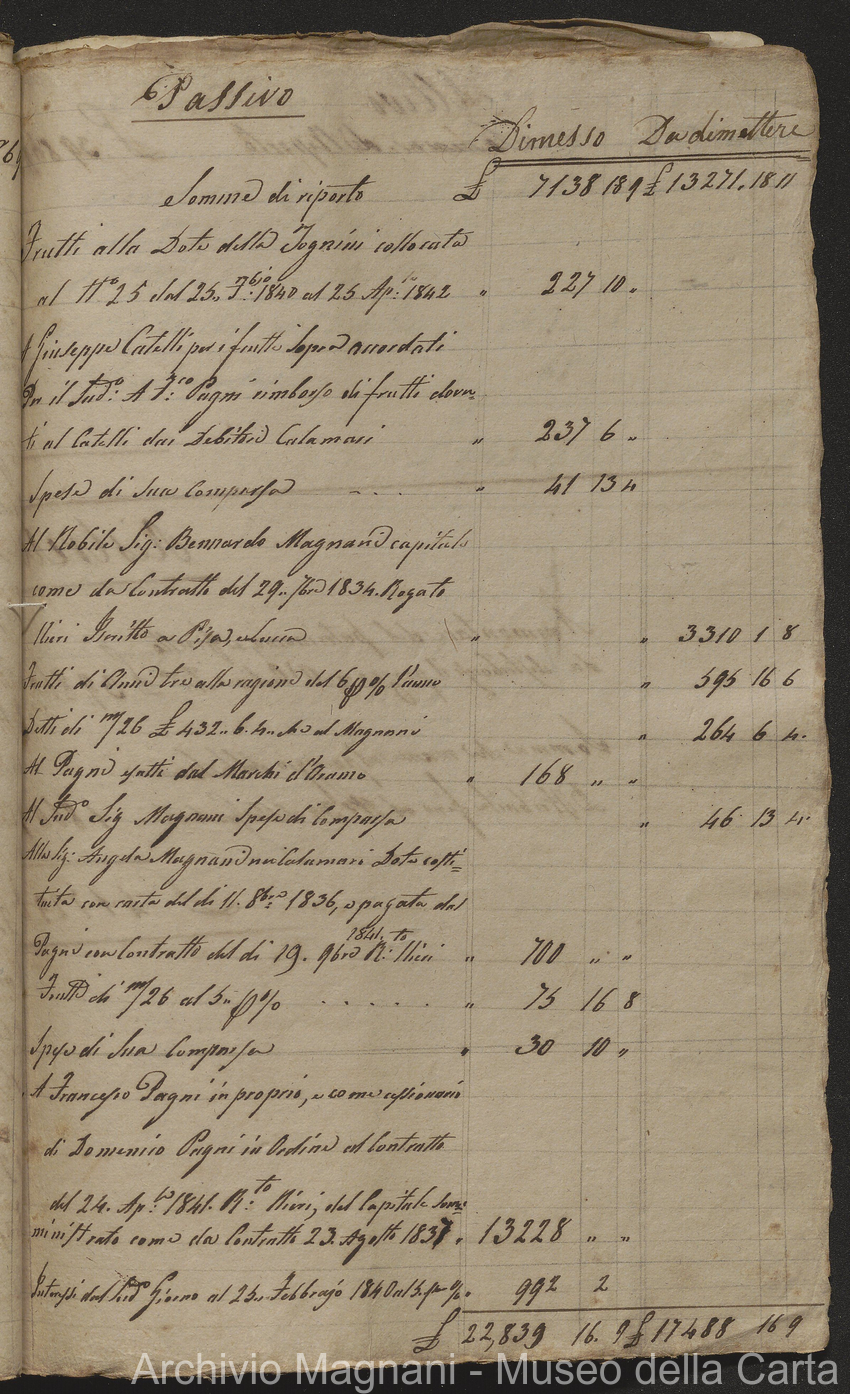 Passivo
Dimesso Da dimettere
Somme di riporto £ 7138 18 9 £ 13271. 18 11
Frutti alla Dote della Tognini collocata
al N.o 25 dal 25. 1840 al 25 Ap.le 1842 " 227 10 "
A Giuseppe Catelli per i frutti sopra accordati
Per il Sud.o A F.co Pagni rimborso di frutti dovu=
ti al Catelli dai Debitori Calamari " 237 6 "
Spese di sua Comparsa - . . . " 41 13 4
Al Nobile Sig: Bernardo Magnani capitale
come da Contratto del 29. 7bre 1834. Rogato
Nieri Iscritto a Pisa, e Lucca " " 3310 1 8
Frutti di Anni tre alla ragione del 6 p% l'anno " 595 16 6
Detti di m/26 £ 432.. 6. 4.. che al Magnani " 264 6 4.
Al Pagni esatti dal Marchi d'Aramo " 168 " "
Al Sud.o Sig Magnani Spese di Comparsa " 46 13 4.
Alla Sig: Angela Magnani nei Calamari Dote costi=
tuita con carta del di 11. 8bre 1836, e pagata dal
Pagni con Contratto del di 19. 9bre 1841. R.to Nieri " 700 " "
Frutti di m/26 al 5.. p% . . . . . . " 75 16 8
Spese di Sua Comparsa " 30 10 "
A Francesco Pagni in proprio, e come cessionario
di Domenico Pagni in Ordine al Contratto
del 24. Ap.le 1841. R.to Nieri, del Capitale som=
ministrato come da Contratto 23. Agosto 1837 " 13228 " "
Interessi dal Sud.o Giorno al 25.. Febbrajo 1840 al 3. per % " 992 2
£ 22,839 16. 9 £ 17488 16 9
Archivio Magnani - Museo della Carta